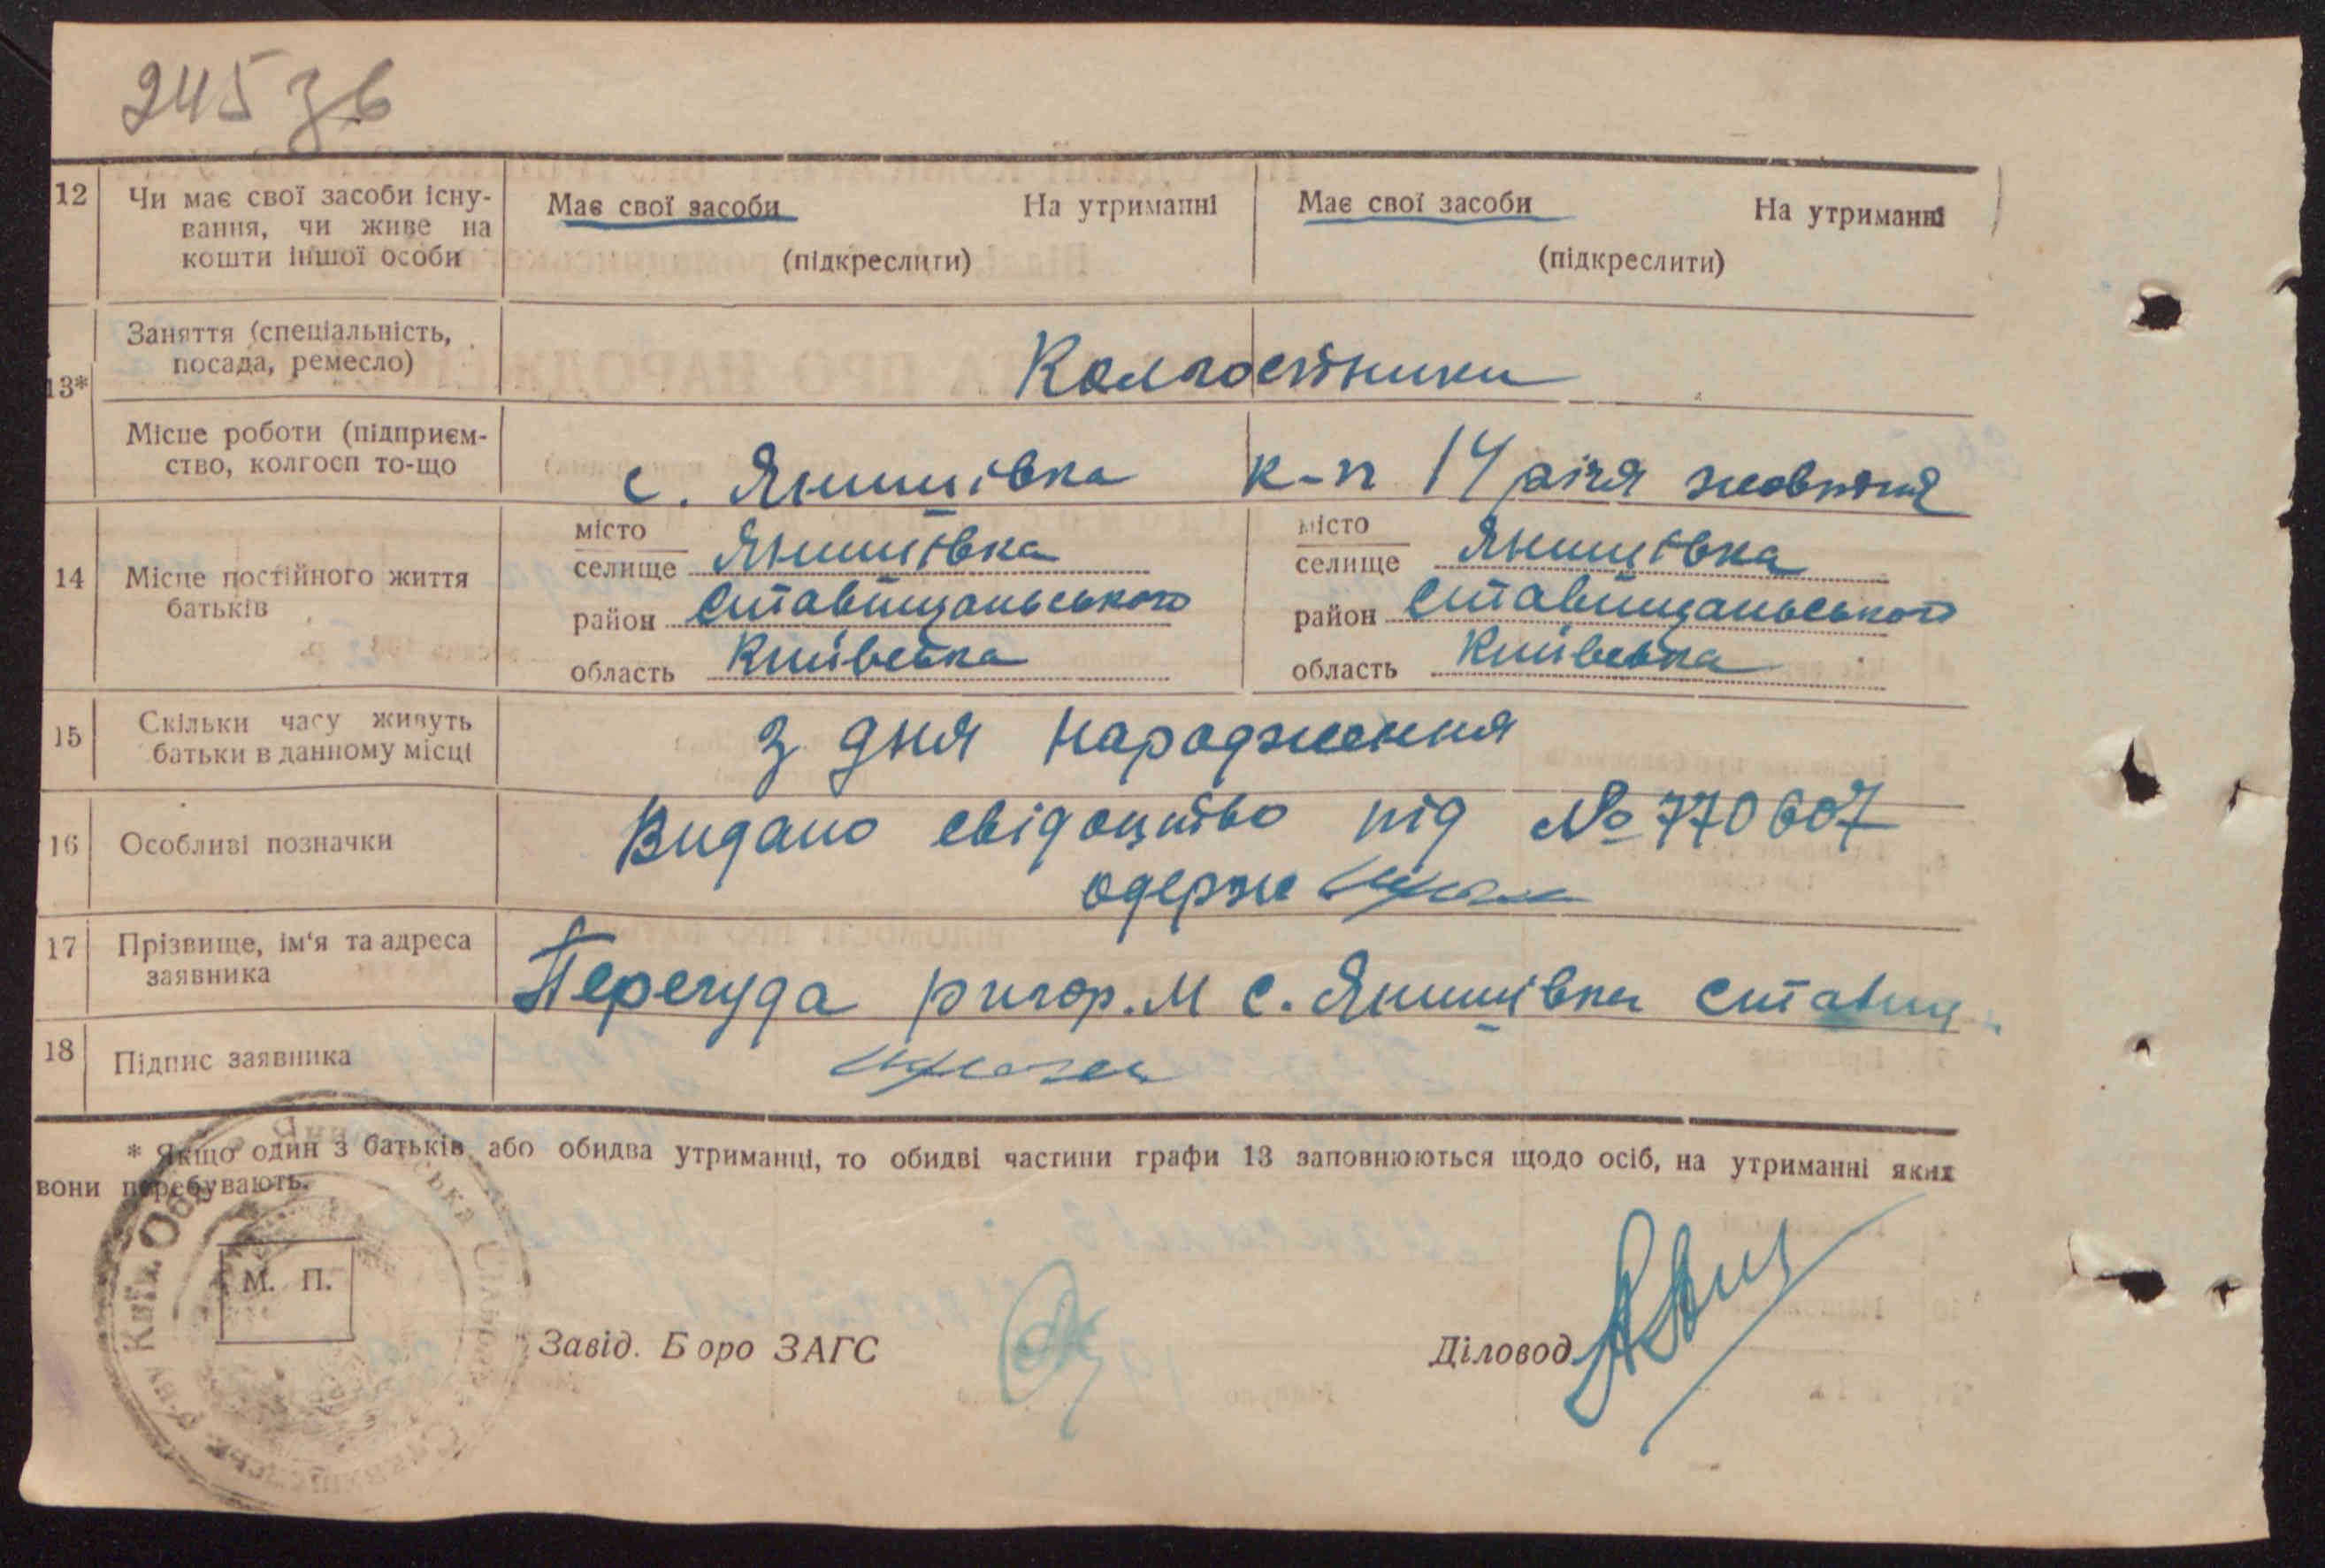 245 зв
12 Чи має свої засоби існу-
вання, чи живе на
кошти іншої особи
Має свої засоби На утриманні
(підкреслити)
Має свої засоби На утриманні
(підкреслити)
13*
Заняття (спеціальність,
посада, ремесло)
Колгостники
Місце роботи (підприєм-
ство, колгосп то-що
с. Янишівка к-п 14 річя жовтня
14 Місце постійного життя
батьків
місто
селище Янишівка
район Ставищанського
область Київська
місто
селище Янишівка
район Ставищанського
область Київська
15 Скільки часу живуть
батьки в данному місці
з дня народження
16 Особливі позначки
Видано свідоцтво під № 770607
одерже
17 Прізвище, ім'я та адреса
заявника
Перегуда ригор. М с. Янишівка Ставищ
18 Підпис заявника
* Якщо один з батьків, або обидва утриманці, то обидві частини графи 13 заповнюються щодо осіб, на утриманні яких
вони перебувають.
М. П.
Завід. Бюро ЗАГС
Діловод